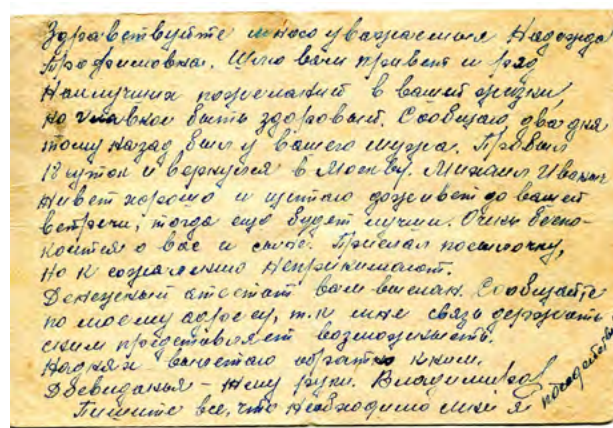 Здравствуйте многоуважаемая Надежда
Трофимовна. Шлю вам привет и ряд
Наилучших пожеланий в вашей жизни,
но главное быть здоровым. Сообщаю два дня
тому назад был у вашего мужа. Пробыл
18 суток и вернулся в Москву. Михаил Иваныч
живет хорошо и доживет до вашей
встречи, тогда еще будет лучше. Очень беспо-
коится о вас и сыне. Прислал посылочку,
но к сожалению непринимают.
Денежный атестат вам выслан. Сообщайте
по моему адресу, т.к мне связь держать с
ским представляет возможность.
на днях вылетаю обратно к ним.
Досвиданья - жму руки. Владимиров
Пишите все, что необходимо мне я